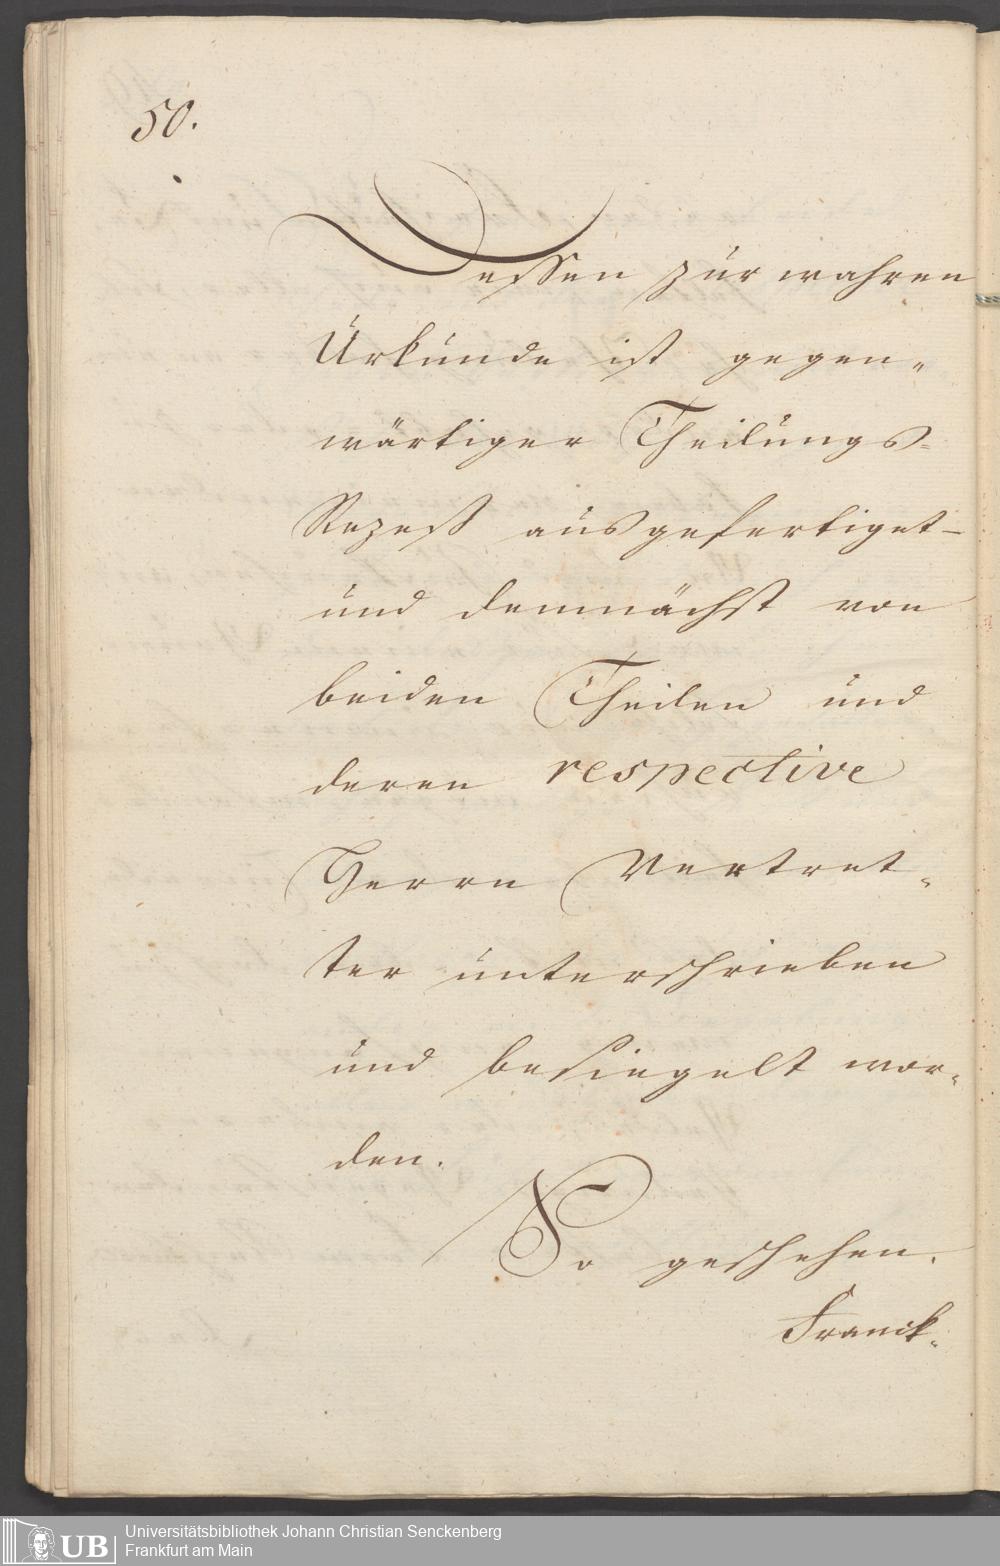 50.
Dessen zur wahren
Urkunde ist gegen„
wärtiger Theilungs-
Rezeß ausgefertiget
und demnächst von
beiden Theilen und
deren respective
Herrn Vertret„
ter unterschrieben
und besiegelt wor„
den.
So geschehen.
Franck„
UB
Universitätsbibliothek Johann Christian Senckenberg
Frankfurt am Main